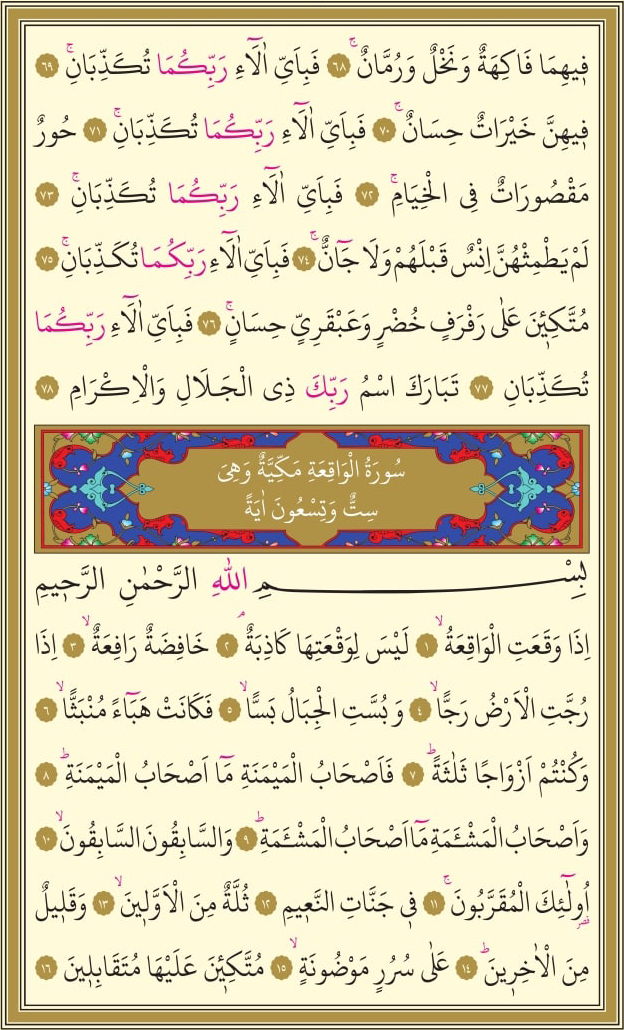 فِيهِمَا فَاكِهَةٌ وَنَخْلٌ وَرُمَّانٌۚ ﴿٦٨﴾ فَبِاَيِّ اٰلَٓاءِ رَبِّكُمَا تُكَذِّبَانِۚ ﴿٦٩﴾
فِيهِنَّ خَيْرَاتٌ حِسَانٌۚ ﴿٧٠﴾ فَبِاَيِّ اٰلَٓاءِ رَبِّكُمَا تُكَذِّبَانِۚ ﴿٧١﴾ حُورٌ
مَقْصُورَاتٌ فِى الْخِيَامِۚ ﴿٧٢﴾ فَبِاَيِّ اٰلَٓاءِ رَبِّكُمَا تُكَذِّبَانِۚ ﴿٧٣﴾
لَمْ يَطْمِثْهُنَّ اِنْسٌ قَبْلَهُمْ وَلَا جَٓانٌّۚ ﴿٧٤﴾ فَبِاَيِّ اٰلَٓاءِ رَبِّكُمَا تُكَذِّبَانِۚ ﴿٧٥﴾
مُتَّكِـِٔينَ عَلٰى رَفْرَفٍ خُضْرٍ وَعَبْقَرِيٍّ حِسَانٍۚ ﴿٧٦﴾ فَبِاَيِّ اٰلَٓاءِ رَبِّكُمَا
تُكَذِّبَانِ ﴿٧٧﴾ تَبَارَكَ اسْمُ رَبِّكَ ذِى الْجَلَالِ وَالْاِكْرَامِ ﴿٧٨﴾
سُورَةُ الْوَاقِعَةِ مَكِّيَّةٌ وَهِىَ
سِتٌّ وَتِسْعُونَ اٰيَةً
بِسْمِ اللّٰهِ الرَّحْمٰنِ الرَّحِيمِ
اِذَا وَقَعَتِ الْوَاقِعَةُۙ ﴿١﴾ لَيْسَ لِوَقْعَتِهَا كَاذِبَةٌۢ ﴿٢﴾ خَافِضَةٌ رَافِعَةٌۙ ﴿٣﴾ اِذَا
رُجَّتِ الْاَرْضُ رَجًّاۙ ﴿٤﴾ وَبُسَّتِ الْجِبَالُ بَسًّاۙ ﴿٥﴾ فَكَانَتْ هَبَٓاءً مُنْبَثًّاۙ ﴿٦﴾
وَكُنْتُمْ اَزْوَاجًا ثَلٰثَةًۜ ﴿٧﴾ فَاَصْحَابُ الْمَيْمَنَةِ مَٓا اَصْحَابُ الْمَيْمَنَةِۜ ﴿٨﴾
وَاَصْحَابُ الْمَشْـَٔمَةِ مَٓا اَصْحَابُ الْمَشْـَٔمَةِۜ ﴿٩﴾ وَالسَّابِقُونَ السَّابِقُونَۙ ﴿١٠﴾
اُولٰٓئِكَ الْمُقَرَّبُونَۚ ﴿١١﴾ فِي جَنَّاتِ النَّعِيمِ ﴿١٢﴾ ثُلَّةٌ مِنَ الْاَوَّلِينَۙ ﴿١٣﴾ وَقَلِيلٌ
مِنَ الْاٰخِرِينَۜ ﴿١٤﴾ عَلٰى سُرُرٍ مَوْضُونَةٍۙ ﴿١٥﴾ مُتَّكِـِٔينَ عَلَيْهَا مُتَقَابِلِينَ ﴿١٦﴾